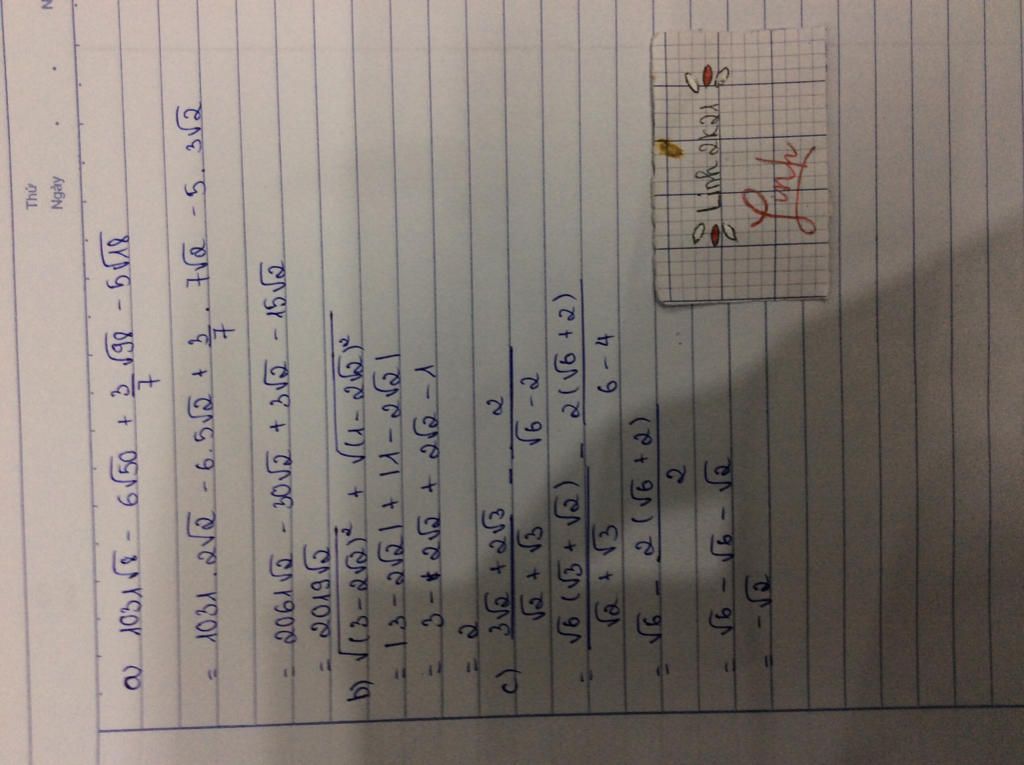 Thứ
Ngày
N
a) 1031√8 - 6√50 + 3/7 √98 - 5√18
= 1031 . 2√2 - 6.5√2 + 3/7 . 7√2 - 5 . 3√2
= 2061√2 - 30√2 + 3√2 - 15√2
= 2019√2
b) √(3 - 2√2)² + √(1 - 2√2)²
= |3 - 2√2| + |1 - 2√2|
= 3 - 2√2 + 2√2 - 1
= 2
c) (3√2 + 2√3)/(√2 + √3) - 2/(√6 - 2)
= √6(√3 + √2)/(√2 + √3) - 2(√6 + 2)/(6 - 4)
= √6 - 2(√6 + 2)/2
= √6 - √6 - √2
= -√2
Linh2k21
Linh